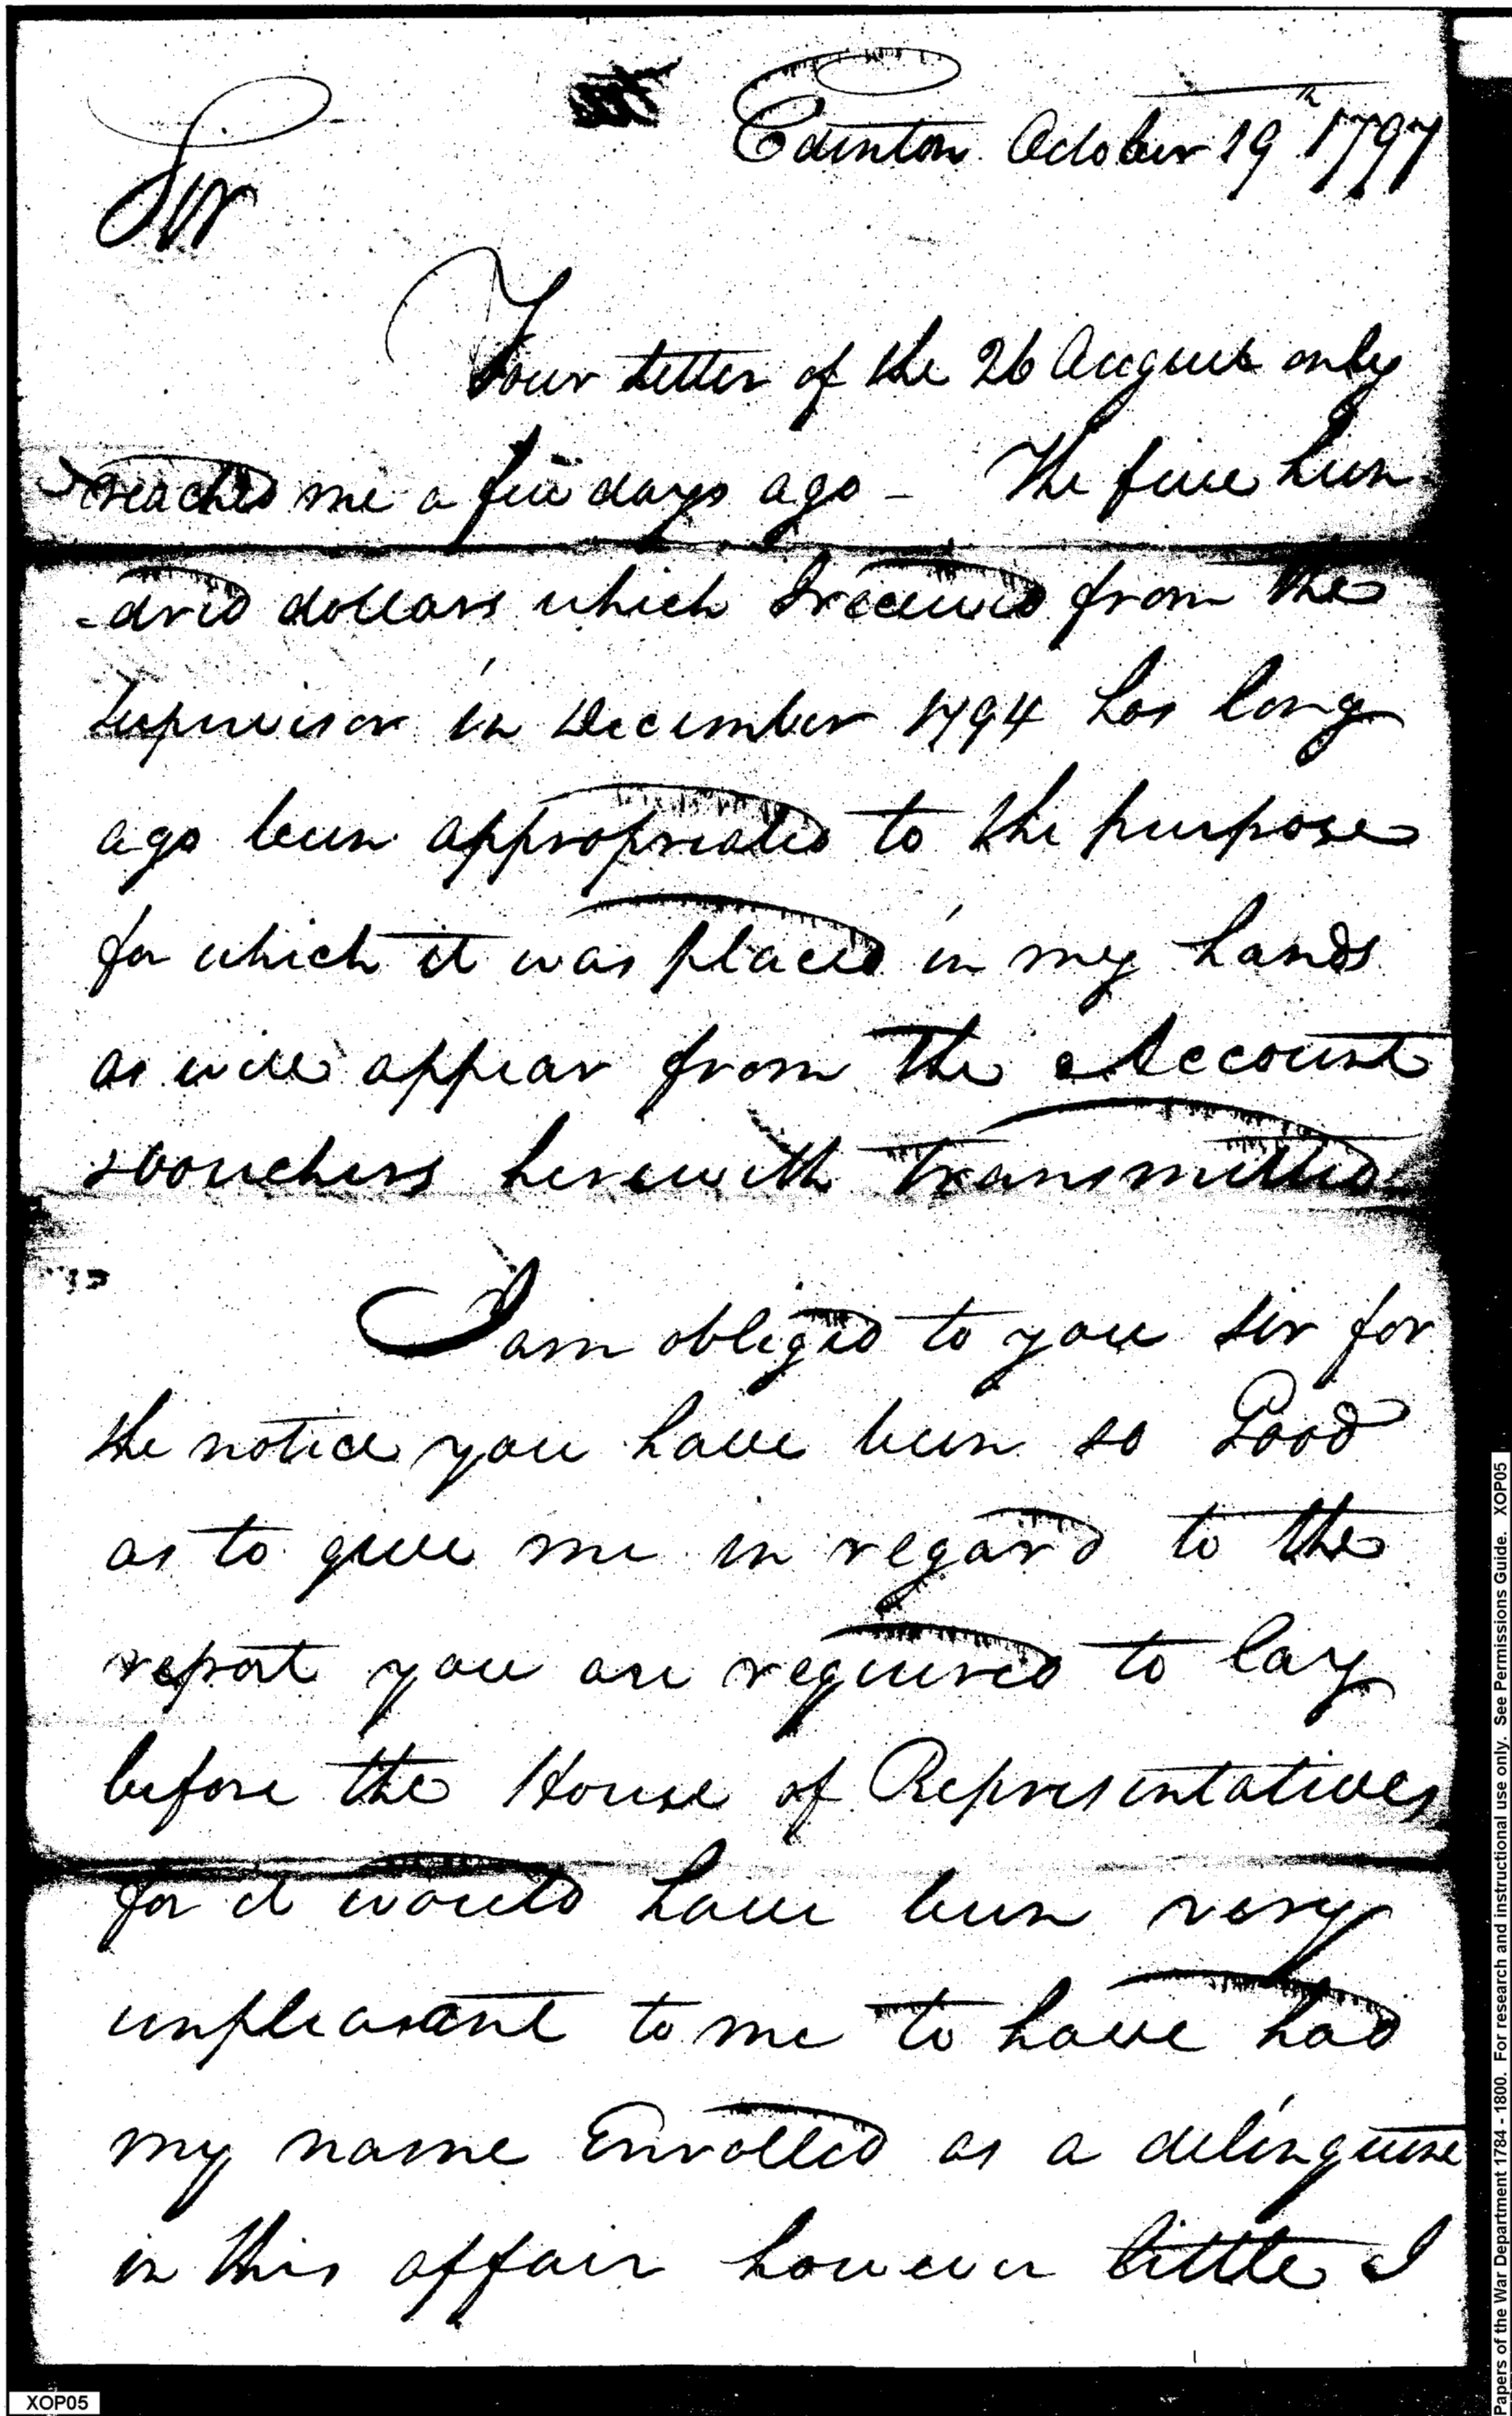 Edinton October 19th 1797
Sir
Your letter of the 26 August only
reached me a few days ago - The five hun-
-dred dollars which I received from the
supervisor in December 1794 has long
ago been appropriated to the purpose
for which it was placed in my hands
as will appear from the Account
& vouchers herewith transmitted.
I am obliged to you sir for
the notice you have been so Good
as to give me in regard to the
report you are required to lay
before the House of Representatives
for it would have been very
unpleasant to me to have had
my name Enrolled as a delinquent
in this affair however little I
XOP05
Papers of the War Department 1784 - 1800. For research and instructional use only. See Permissions Guide. XOP05